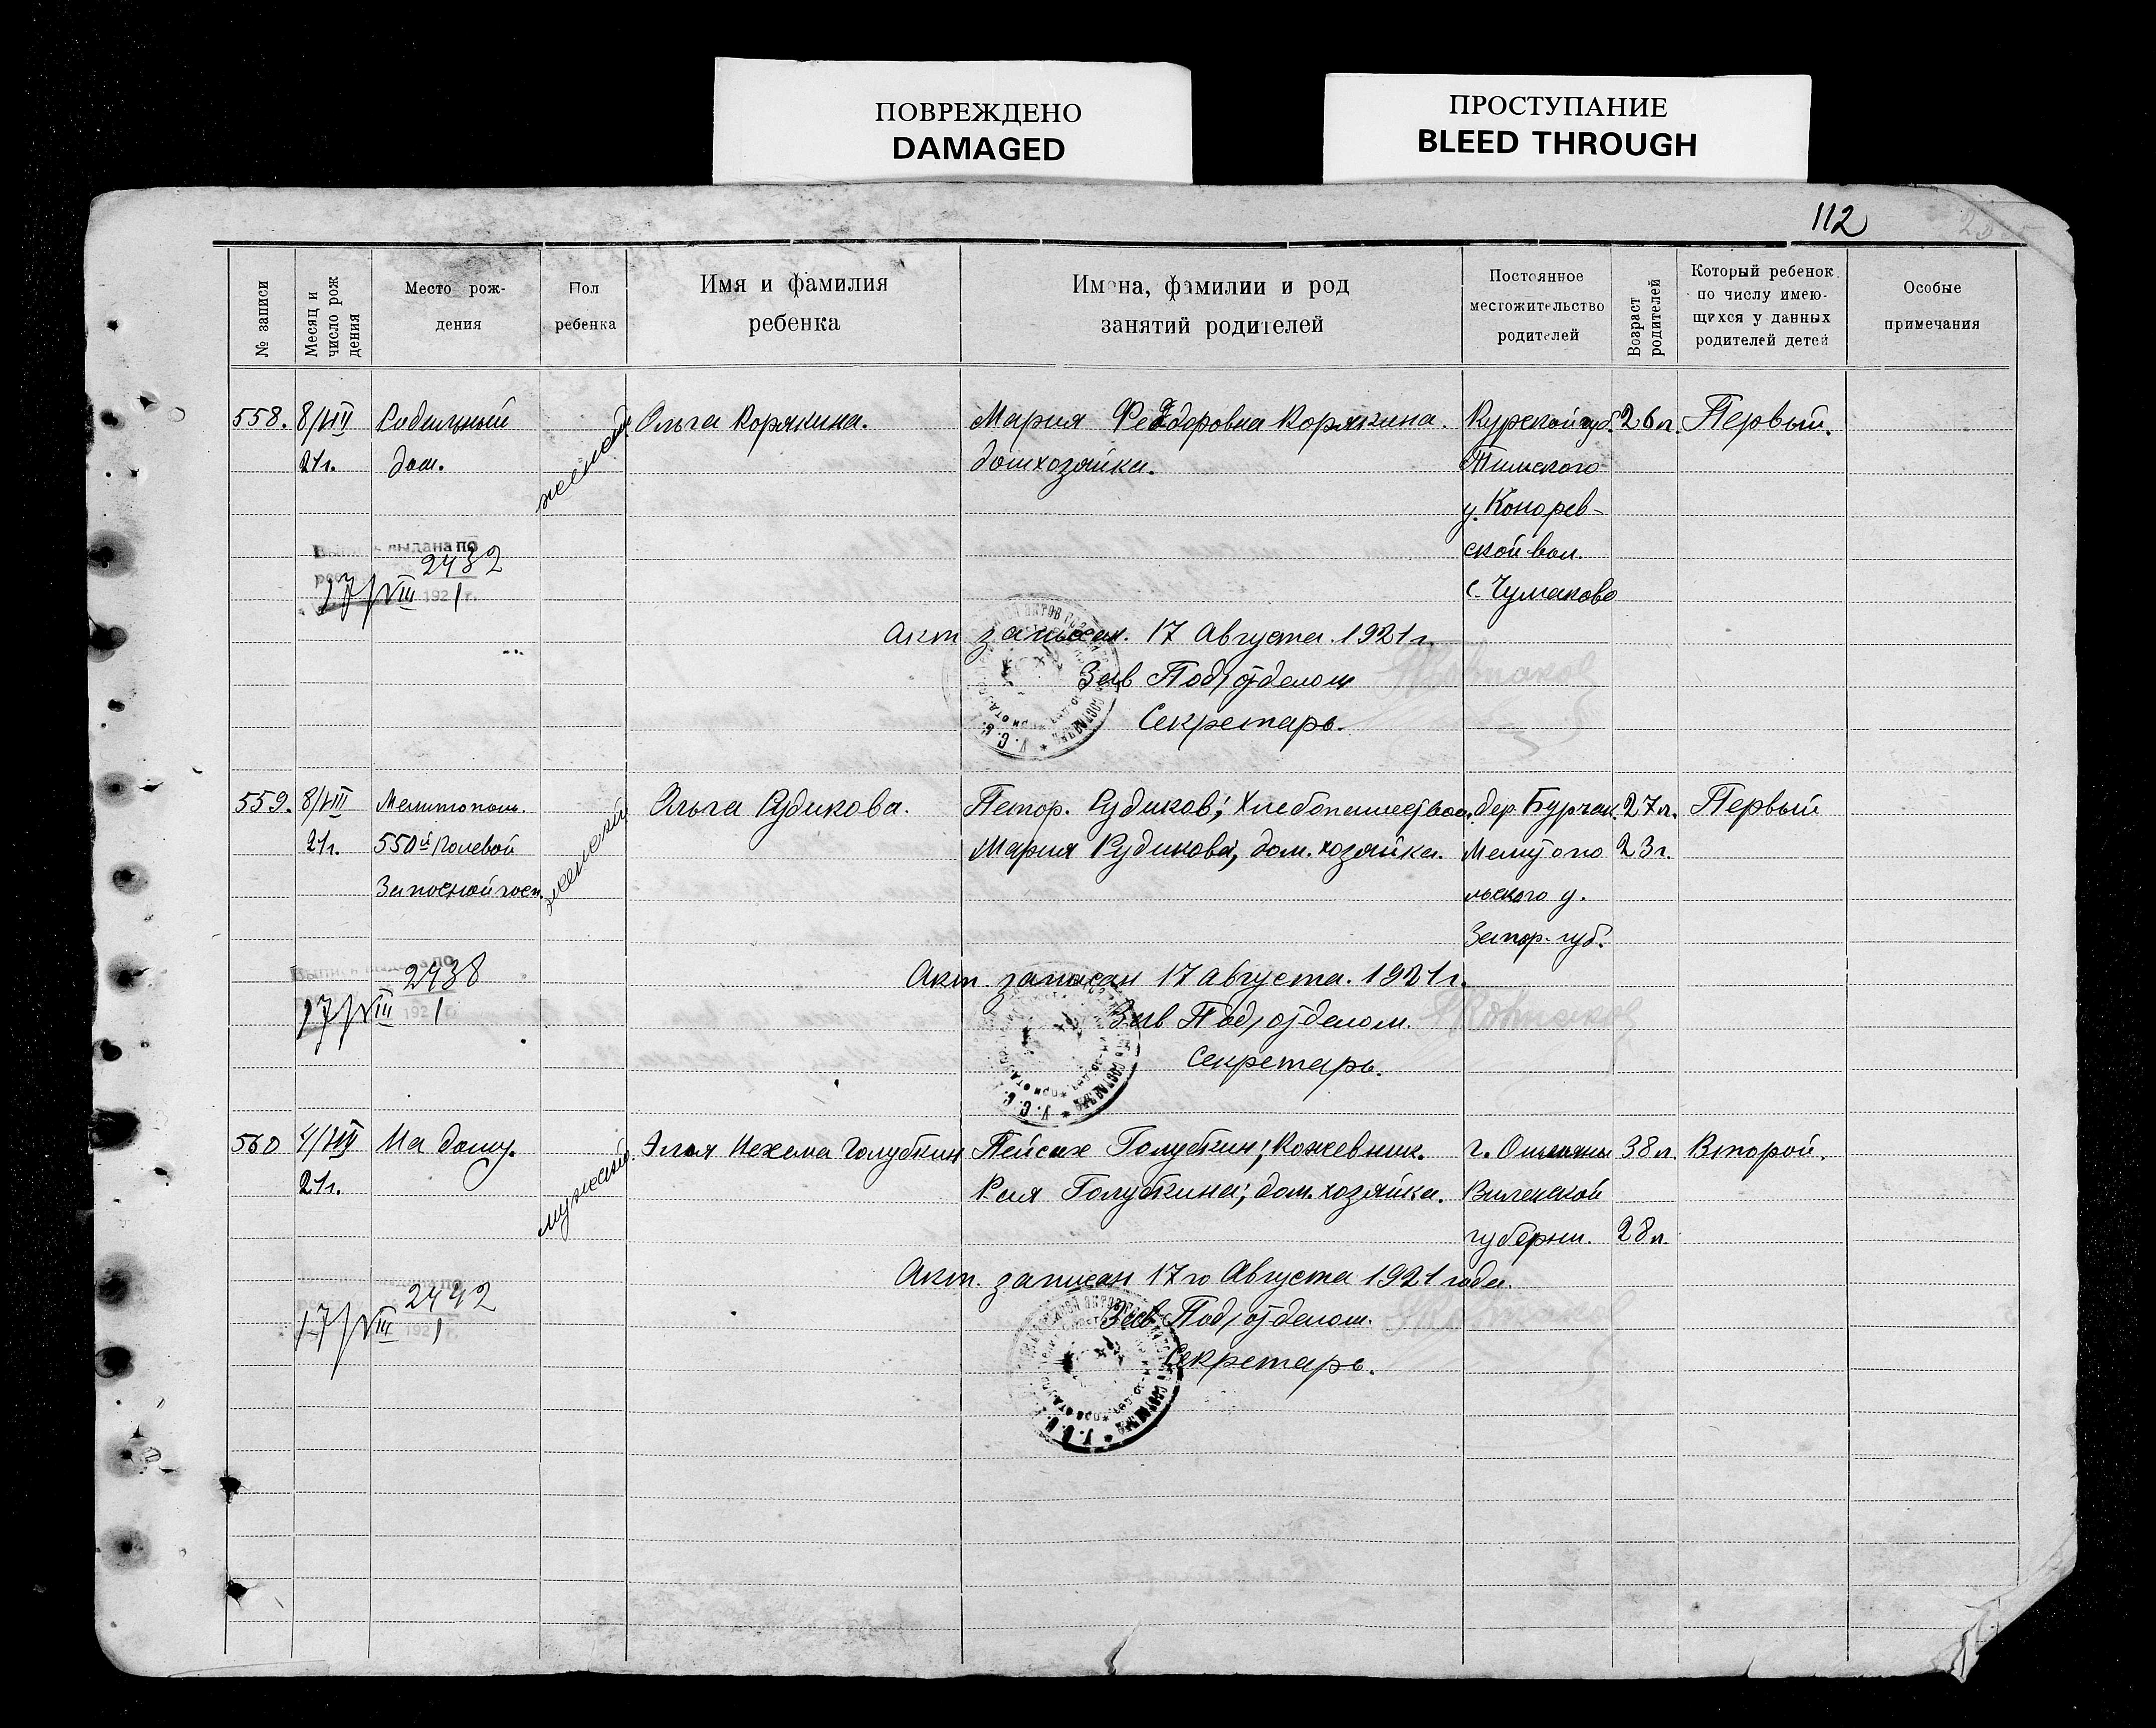 ПОВРЕЖДЕНО
DAMAGED
ПРОСТУПАНИЕ
BLEED THROUGH
112
№ записи
Месяц и
число рож
дения
Место рож-
дения
Пол
ребенка
Имя и фамилия
ребенка
Имена, фамилии и род
занятий родителей
Постоянное
местожительство
родителей
Возраст
родителей
Который ребенок
по числу имею-
щихся у данных
родителей детей
Особые
примечания
558. 8/VIII Родильный женский Ольга Корякина. Мария Федоровна Корякина. Курской губ. 26 л. Первый.
21 г. дом. домхозяйка. Тимского
у. Конорев-
Выпись выдана по ской вол.
2432
17/VIII 1921 г. с. Чумаково
Акт записан. 17 Августа. 1921 г.
Зав Подотделом
Секретарь.
559. 8/VIII Мелитополь. женский Ольга Рудикова. Петр. Рудиков; Хлебопашество. дер. Бурчак. 27 л. Первый
21 г. 550й Полевой Мария Рудикова, дом. хозяйка. Мелитопо 23 г.
Запасной госп. льского у.
Запор. губ.
Выпись выдана по
2438
17/VIII 1921 Акт. записан 17 Августа. 1921 г.
Зав Подотделом.
Секретарь.
560 4/VIII На дому. мужский Элья Нехема Голубкин Пейсах Голубкин; Кожевник. г. Ошмяны 38 л. Второй.
21 г. Рая Голубкина; дом. хозяйка. Виленской
губерни. 28 л.
Акт. записан 17го Августа 1921 года.
2442
17/VIII 1921 г. Зав Подотделом.
Секретарь.